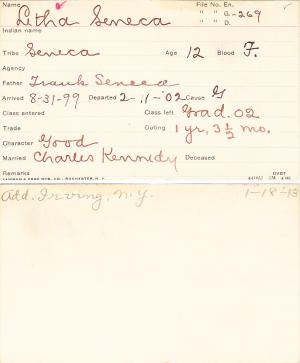 Name Litha Seneca File No. En.
" " G.-269
Indian name " " D.
Tribe Seneca Age 12 Blood F.
Agency
Father Frank Seneca
Arrived 8-31-99 Departed 2-11-02 Cause G
Class entered Class left Grad. 02
Trade Outing 1 yr, 3 1/2 mo.
Character Good
Married Charles Kennedy Deceased
Remarks OVER
Add. Irving, N.Y. 1-18-13